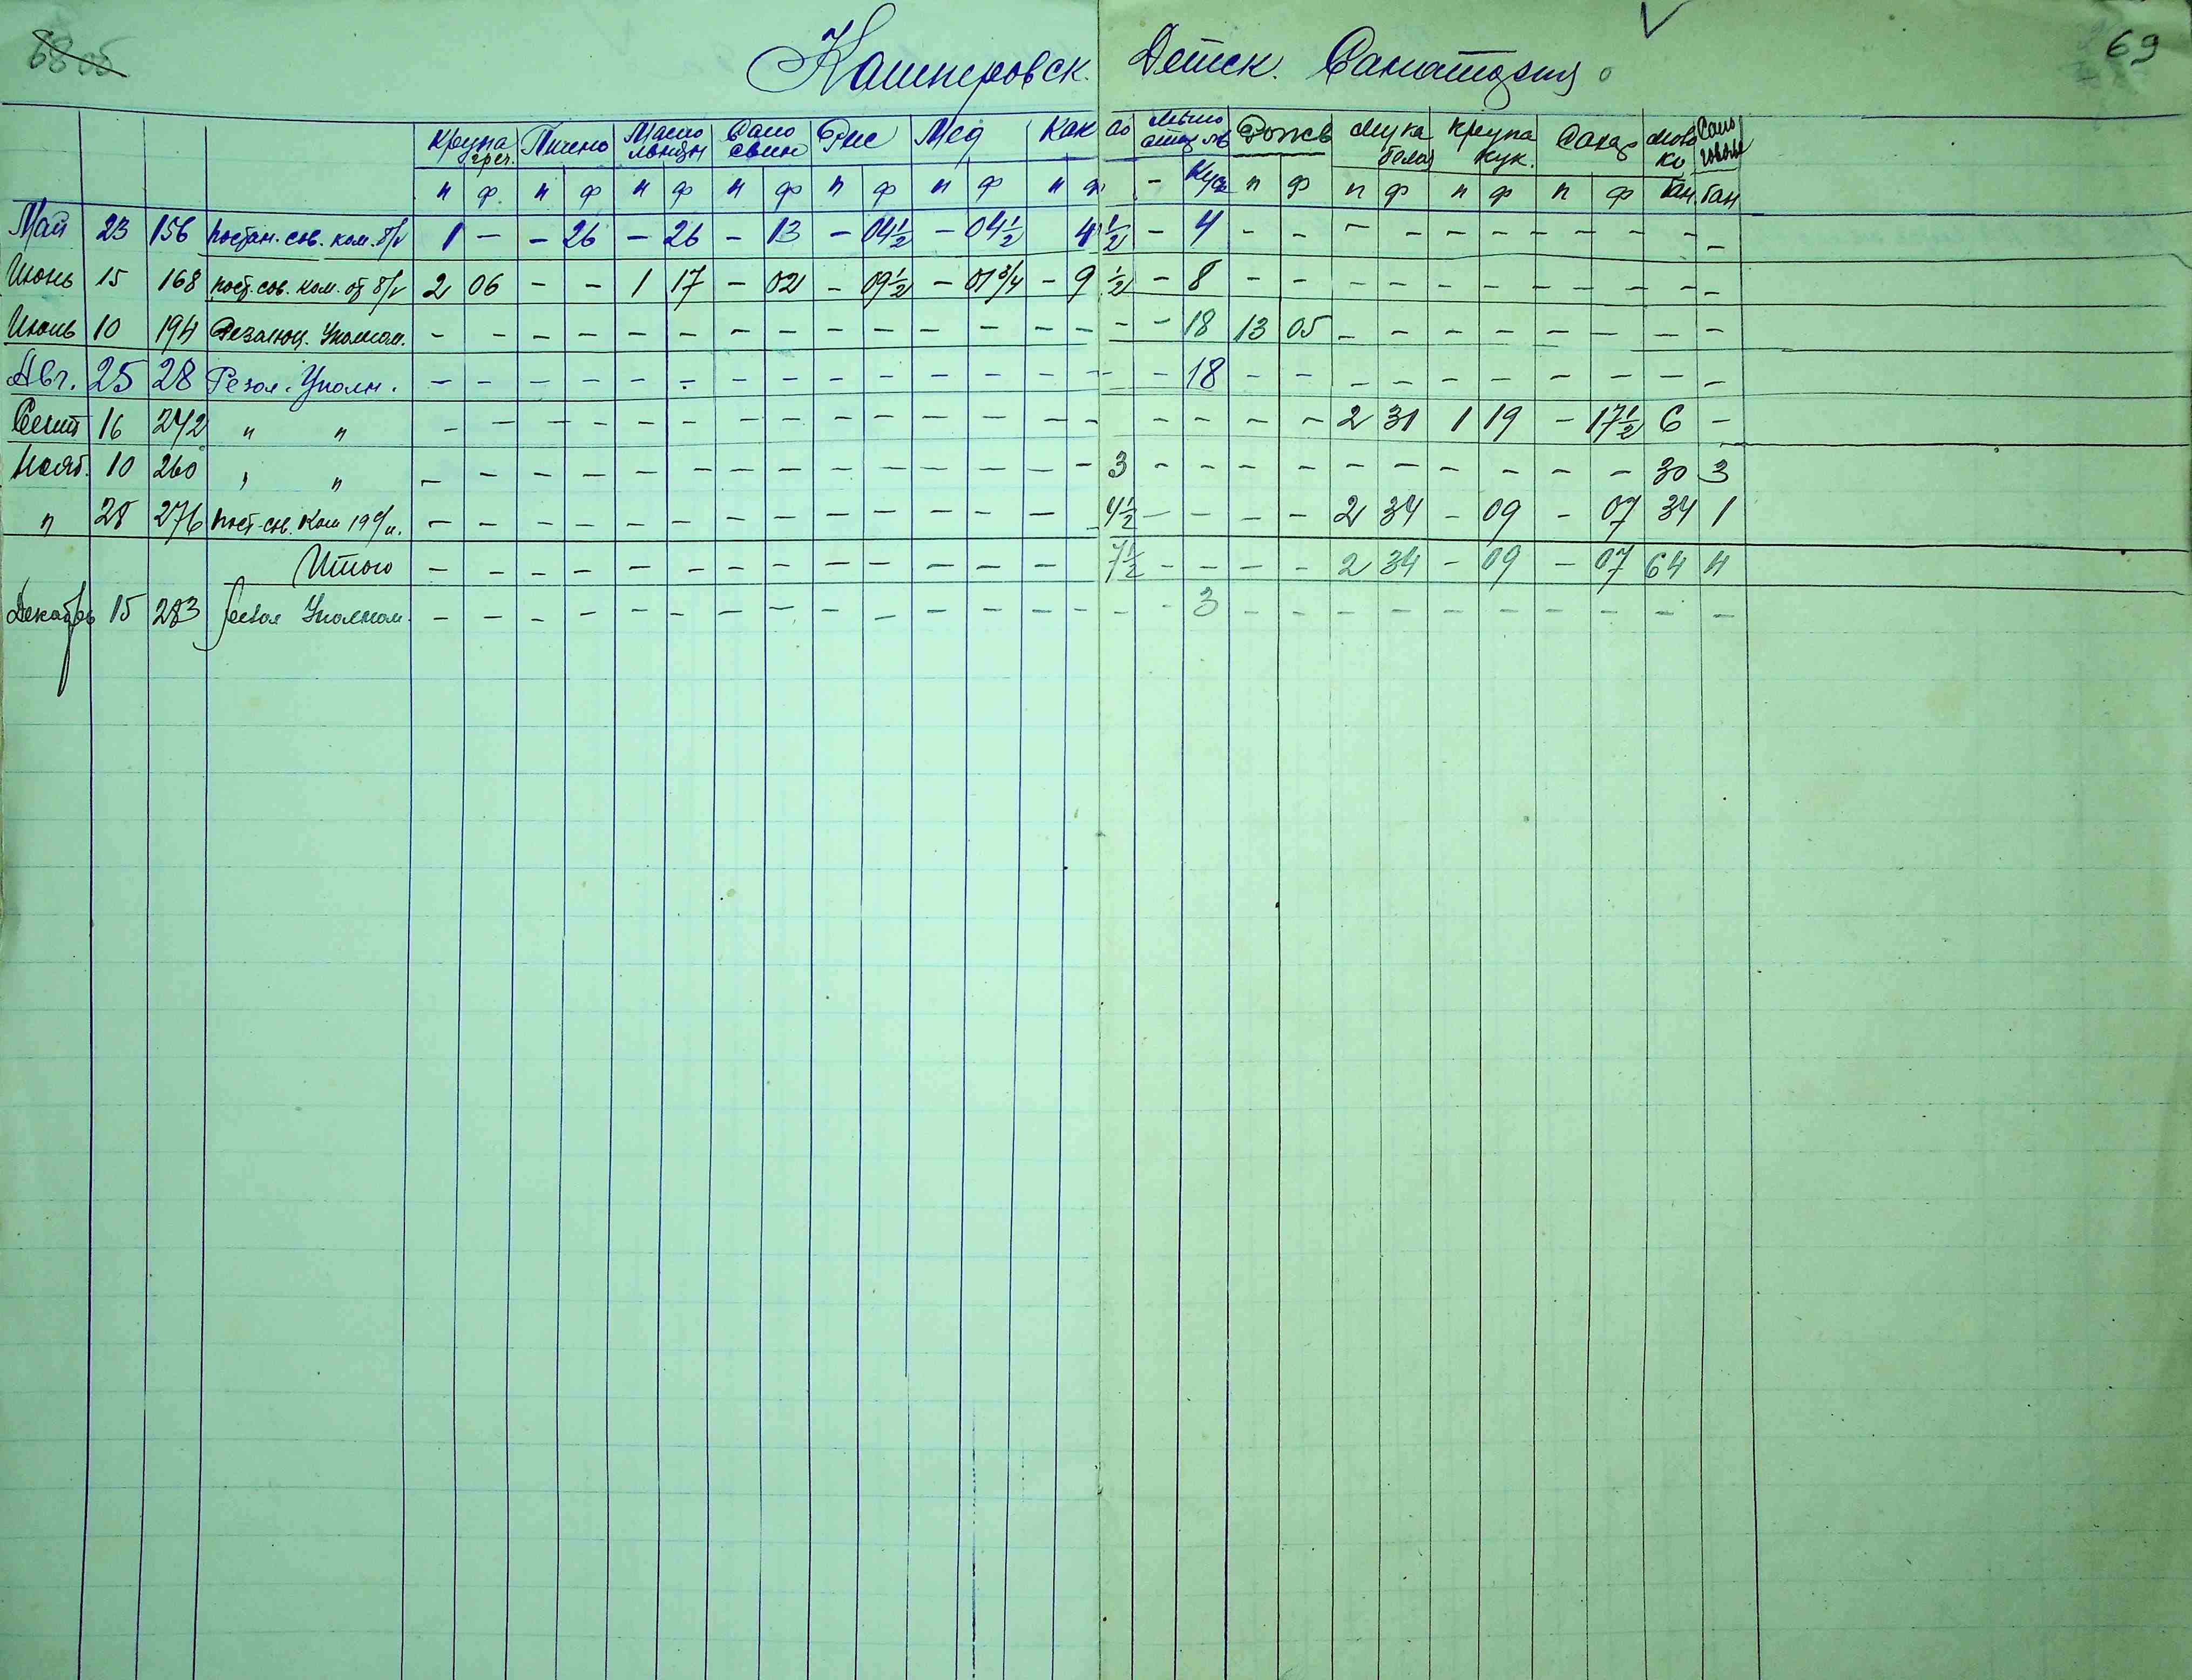 68 об
69
Кашперовск. Детск. Санатория
Крупа греч. Пшено Масло Сало свин Рис Мед Какао мыло Рожь мука белая крупа кук. Сахар молоко Сало
п ф. п ф п ф п ф п ф п ф п ф - Кус п ф п ф п ф п ф бан. бан
Май 23 156 постан. сов. ком. 1 - - 26 - 26 - 13 - 04½ - 04½ 4½ - 4 - - - - - - - - - -
Июнь 15 168 пост. сов. ком. от 8/V 2 06 - - 1 17 - 02 - 09½ - 01¾ - 9½ - 8 - - - - - - - - - -
Июль 10 194 Резолюц. Уполном. - - - - - - - - - - - - - - - 18 13 05 - - - - - - - -
Авг. 25 28 Резол. Уполн. - - - - - - - - - - - - - - - 18 - - - - - - - - - -
Сент 16 242 " " - - - - - - - - - - - - - - - - - - 2 31 1 19 - 17½ 6 -
Нояб. 10 260 " " - - - - - - - - - - - - - 3 - - - - - - - - - - 30 3
" 28 276 пост. сов. Ком 19 - - - - - - - - - - - - - 4½ - - - - 2 34 - 09 - 07 34 1
Итого - - - - - - - - - - - - - 7½ - - - - 2 34 - 09 - 07 64 4
Декабрь 15 283 резол Уполном. - - - - - - - - - - - - - - - 3 - - - - - - - - - -